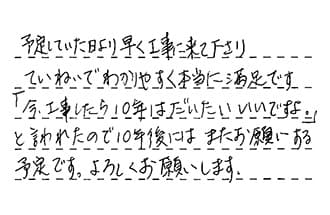 予定していた日より早く工事に来て下さり
ていねいでわかりやすく本当に満足です
「今、工事したら10年はだいたいいいですよ。」
と言われたので10年後にはまたお願いする
予定です。よろしくお願いします。